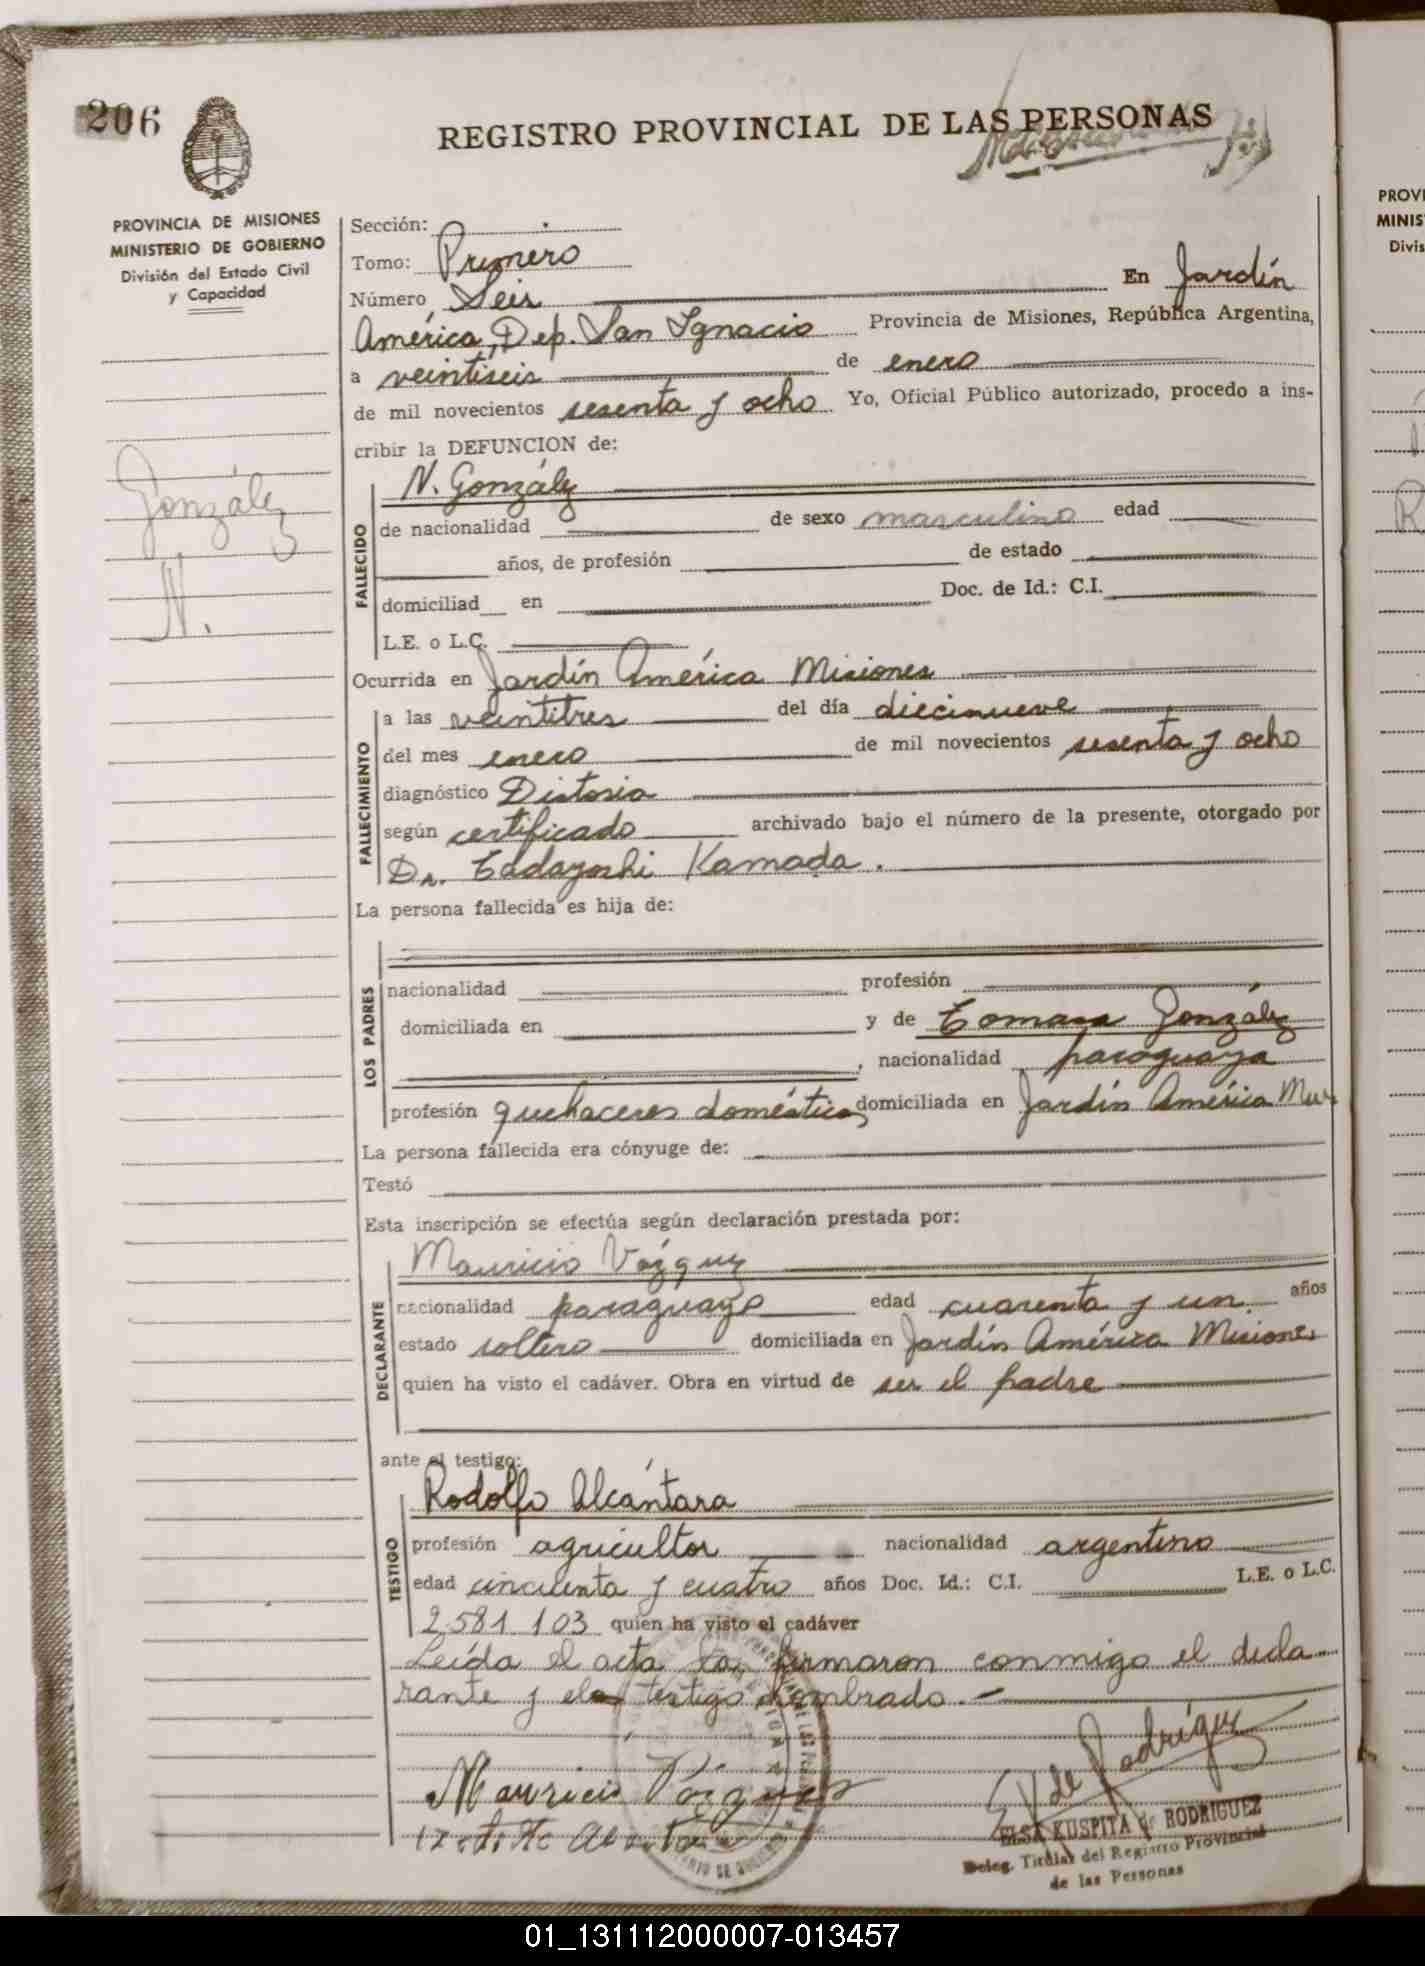 206
REGISTRO PROVINCIAL DE LAS PERSONAS
PROVINCIA DE MISIONES
MINISTERIO DE GOBIERNO
División del Estado Civil
y Capacidad
González
N.
Sección:
Tomo: Primero
Número Seis En Jardín
América, Dep. San Ignacio Provincia de Misiones, República Argentina,
a veintiseis de enero
de mil novecientos sesenta y ocho Yo, Oficial Público autorizado, procedo a ins-
cribir la DEFUNCION de:
FALLECIDO
N. González
de nacionalidad de sexo masculino edad
años, de profesión de estado
domiciliad en Doc. de Id.: C.I.
L.E. o L.C.
Ocurrida en Jardín América Misiones
FALLECIMIENTO
a las veintitres del día diecinueve
del mes enero de mil novecientos sesenta y ocho
diagnóstico Distosia
según certificado archivado bajo el número de la presente, otorgado por
Dr. Tadayoshi Kamada.
La persona fallecida es hija de:
LOS PADRES
nacionalidad profesión
domiciliada en y de Tomasa González
, nacionalidad paraguaya
profesión quehaceres domésticos domiciliada en Jardín América
La persona fallecida era cónyuge de:
Testó
Esta inscripción se efectúa según declaración prestada por:
DECLARANTE
Mauricio Vázquez
nacionalidad paraguayo edad cuarenta y un años
estado soltero domiciliada en Jardín América Misiones
quien ha visto el cadáver. Obra en virtud de ser el padre
ante el testigo:
TESTIGO
Rodolfo Alcántara
profesión agricultor nacionalidad argentino
edad cincuenta y cuatro años Doc. Id.: C.I. L.E. o L.C.
2581103 quien ha visto el cadáver
Leída el acta la firmaron conmigo el decla-
rante y el testigo nombrado.-
Mauricio Vázquez
E K de Rodríguez
ELSA KUSPITA de RODRIGUEZ
Deleg. Titular del Registro Provincial
de las Personas
PROVI
MINIS
Divis
01_131112000007-013457